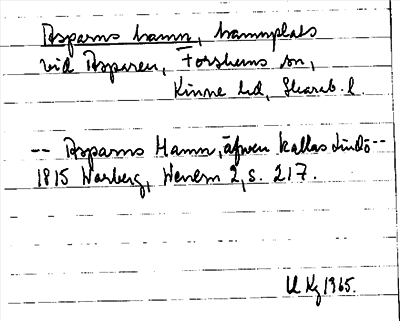 Aspams hamn, hamnplats
vid Asparen, Forshems sn,
Kinne hd, Skarab. l.
-- Aspams Hamn, äfven kallas Lindö --
1815 Warberg, Wenern 2, s. 217.
U Kg 1965.